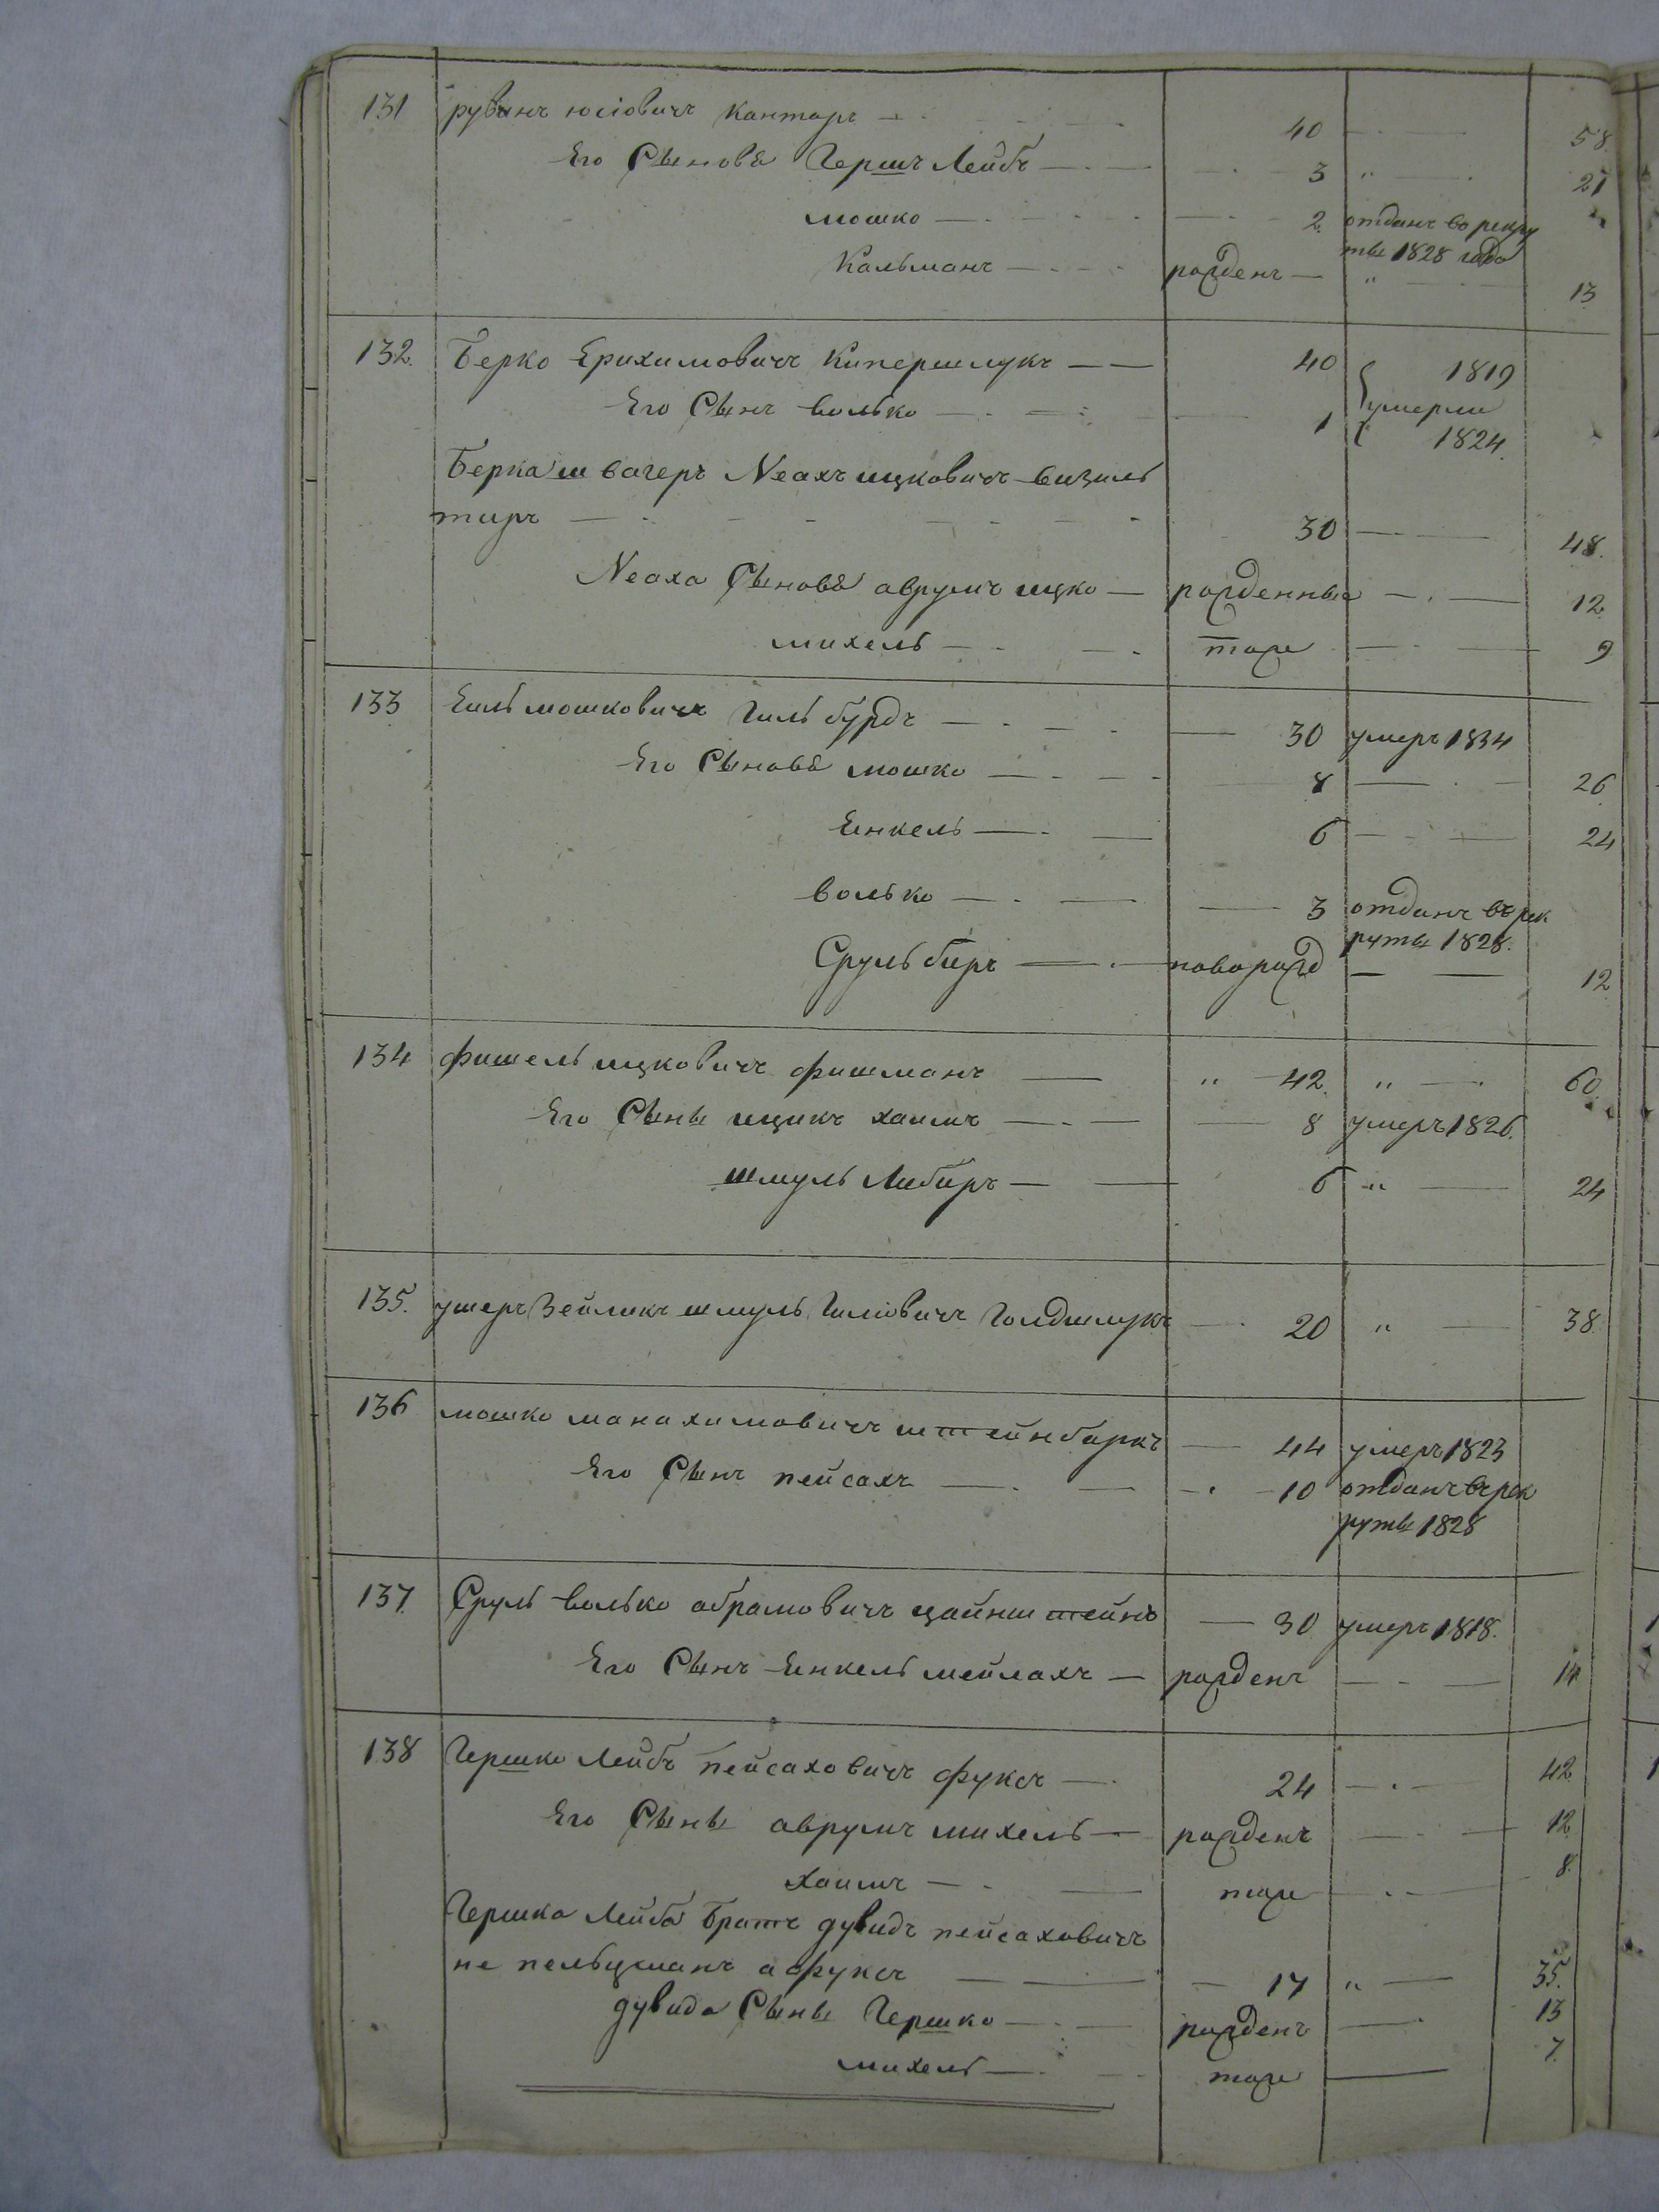 131 рувинъ юсіовичъ Кантаръ 40 58.
Его Сыновя Гершъ Лейбъ 3 " 21
мошко 2. отданъ во рекру
ты 1828 года
Кальманъ рожденъ " 13
132. Берко Ерихимовичъ Кипершлукъ 40 1819
умерли
Его Сынъ волько 1 1824.
Берка швагеръ Неахъ ицковичъ визиль
тиръ 30 48.
Неаха Сыновя аврумъ ицко рожденные 12.
михель тоже 9
133 Еиль мошковичъ Гильбурдъ 30 умеръ 1834
Его Сыновя мошко 8 26
Енкель 6 24
волько 3 отданъ въ рек
руты 1828.
Срульберъ поворожд 12
134 фишель ицковичъ фишманъ " 42. " 60.
Его Сыны ицикъ хаимъ 8 умеръ 1826.
шмуль Либеръ 6 " 24
135. ушеръ Зейликъ шмуль Гиліовичъ Голдшлукъ 20 " 38.
136 мошко манахимовичъ штейнбаркъ 44 умеръ 1823
Его Сынъ пейсахъ 10 отданъ въ рек
руты 1828
137. Сруль волько абрамовичъ цайнштейнъ 30 умеръ 1818.
Его Сынъ Енкель мейлахъ рожденъ 14
138 Гершко Лейбъ пейсаховичъ фуксъ 24 42
Его Сыны аврумъ михель рожденъ 12.
хаимъ тоже 8.
Гершка Лейба Братъ дувидъ пейсаховичъ
не пельцманъ а фуксъ 17 " 35.
дувида Сыны Гершко рожденъ 13
михель тоже 7.